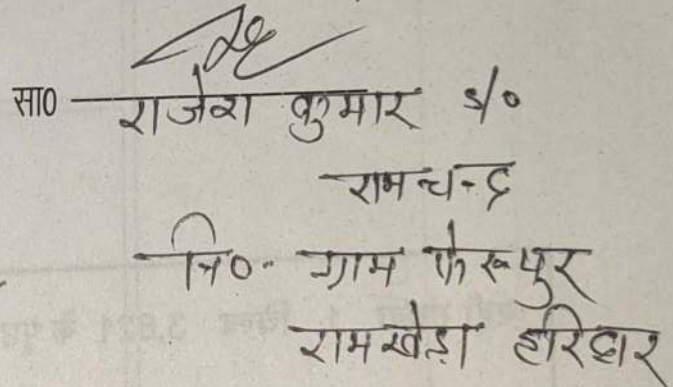 सा0 राजेश कुमार S/o
रामचन्द्र
नि0- ग्राम फेरूपुर
रामखेड़ा हरिद्वार